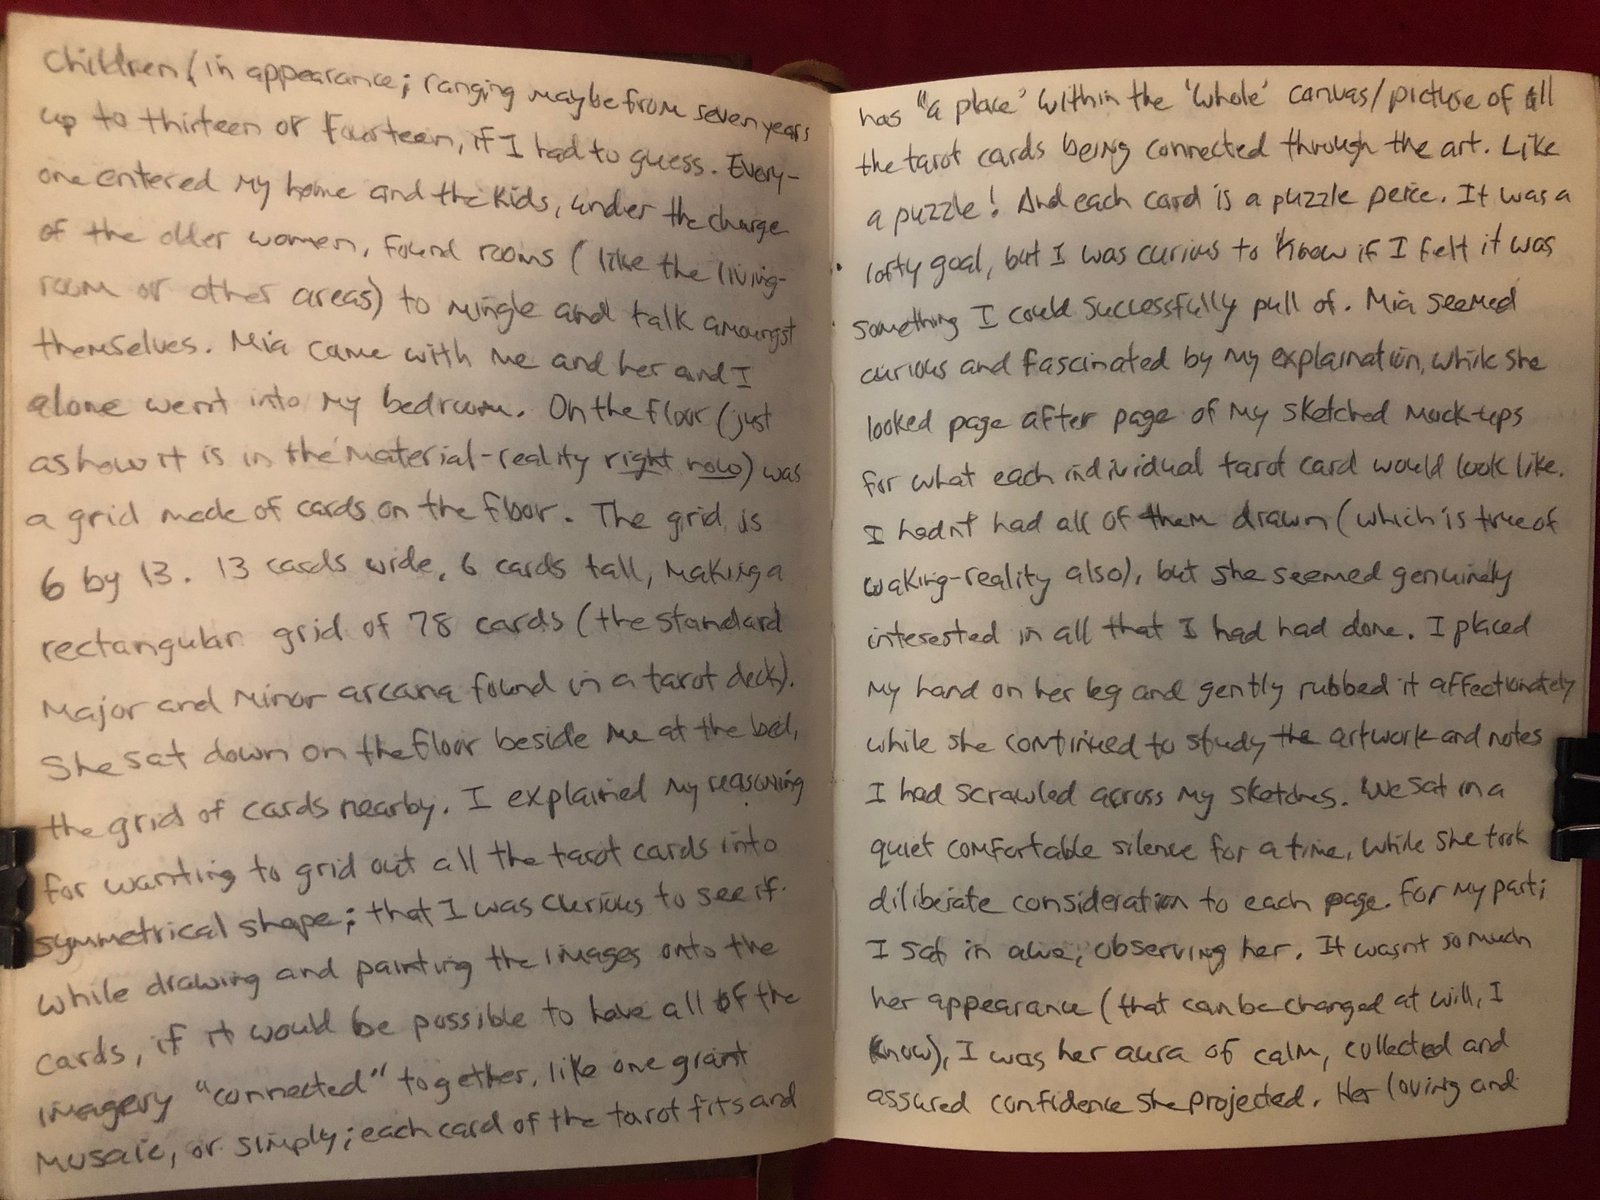 children (in appearance; ranging maybe from seven years
up to thirteen or fourteen, if I had to guess. Every-
one entered my home and the kids, under the charge
of the older women, found rooms (like the living-
room or other areas) to mingle and talk amoungst
themselves. Mia came with me and her and I
alone went into my bedroom. On the floor (just
as how it is in the material-reality right now) was
a grid made of cards on the floor. The grid is
6 by 13. 13 cards wide, 6 cards tall, making a
rectangular grid of 78 cards (the standard
Major and Minor arcana found in a tarot deck).
She sat down on the floor beside me at the bed,
the grid of cards nearby. I explained my reasoning
for wanting to grid out all the tarot cards into
symmetrical shape; that I was curious to see if
while drawing and painting the images onto the
cards, if it would be possible to have all of the
imagery "connected" together, like one giant
musaic, or simply; each card of the tarot fits and
has "a place' within the 'whole' canvas/picture of all
the tarot cards being connected through the art. Like
a puzzle! And each card is a puzzle peice. It was a
lofty goal, but I was curious to know if I felt it was
something I could successfully pull of. Mia seemed
curious and fascinated by my explaination, while she
looked page after page of my sketched mock-ups
for what each individual tarot card would look like.
I hadn't had all of them drawn (which is true of
waking-reality also), but she seemed genuinely
interested in all that I had had done. I placed
my hand on her leg and gently rubbed it affectionately
while she continued to study the artwork and notes
I had scrawled across my sketches. We sat in a
quiet comfortable silence for a time, while she took
diliberate consideration to each page. For my part;
I sat in awe; observing her. It wasn't so much
her appearance (that can be changed at will, I
know), I was her aura of calm, collected and
assured confidence she projected. Her loving and